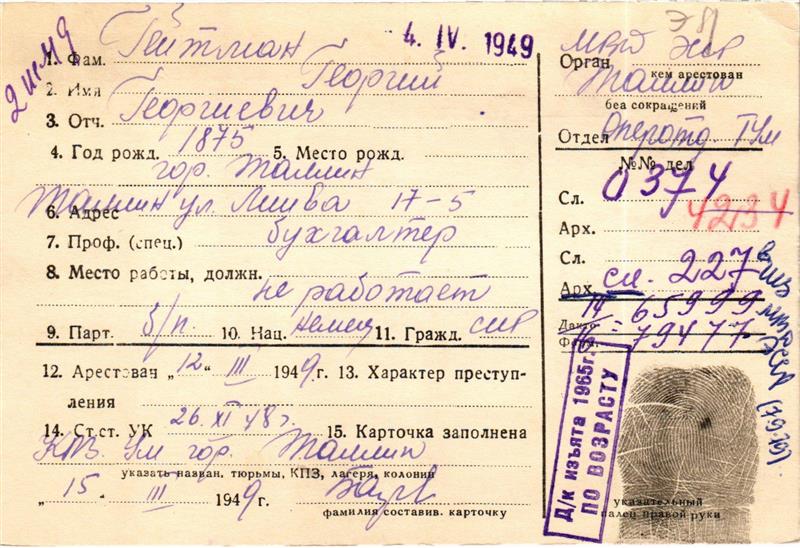 4. IV. 1949
1. Фам. Гейтман
2. Имя Георгий
3. Отч. Георгиевич
4. Год рожд. 1875 5. Место рожд.
гор. Таллин
6. Адрес Таллин ул. 17-5
7. Проф. (спец.) бухгалтер
8. Место работы, должн.
не работает
9. Парт. б/п 10. Нац. немец 11. Гражд. ссср
12. Арестован „12“ III 1949г. 13. Характер преступ-
ления
14. Ст.ст. УК 26. XI 48г. 15. Карточка заполнена
КПЗ гор. Таллин
указать назван. тюрьмы, КПЗ, лагеря, колонии
„15“ III 1949г.
фамилия составив. карточку
Орган МВД эсср
кем арестован
Таллин
без сокращений
Отдел
№№ дел
Сл. 0374
4234
Арх.
Сл.
Арх. сл. 227
14 - 65999
79477
Д/к изъята 1965г.
ПО ВОЗРАСТУ
указательный
палец правой руки